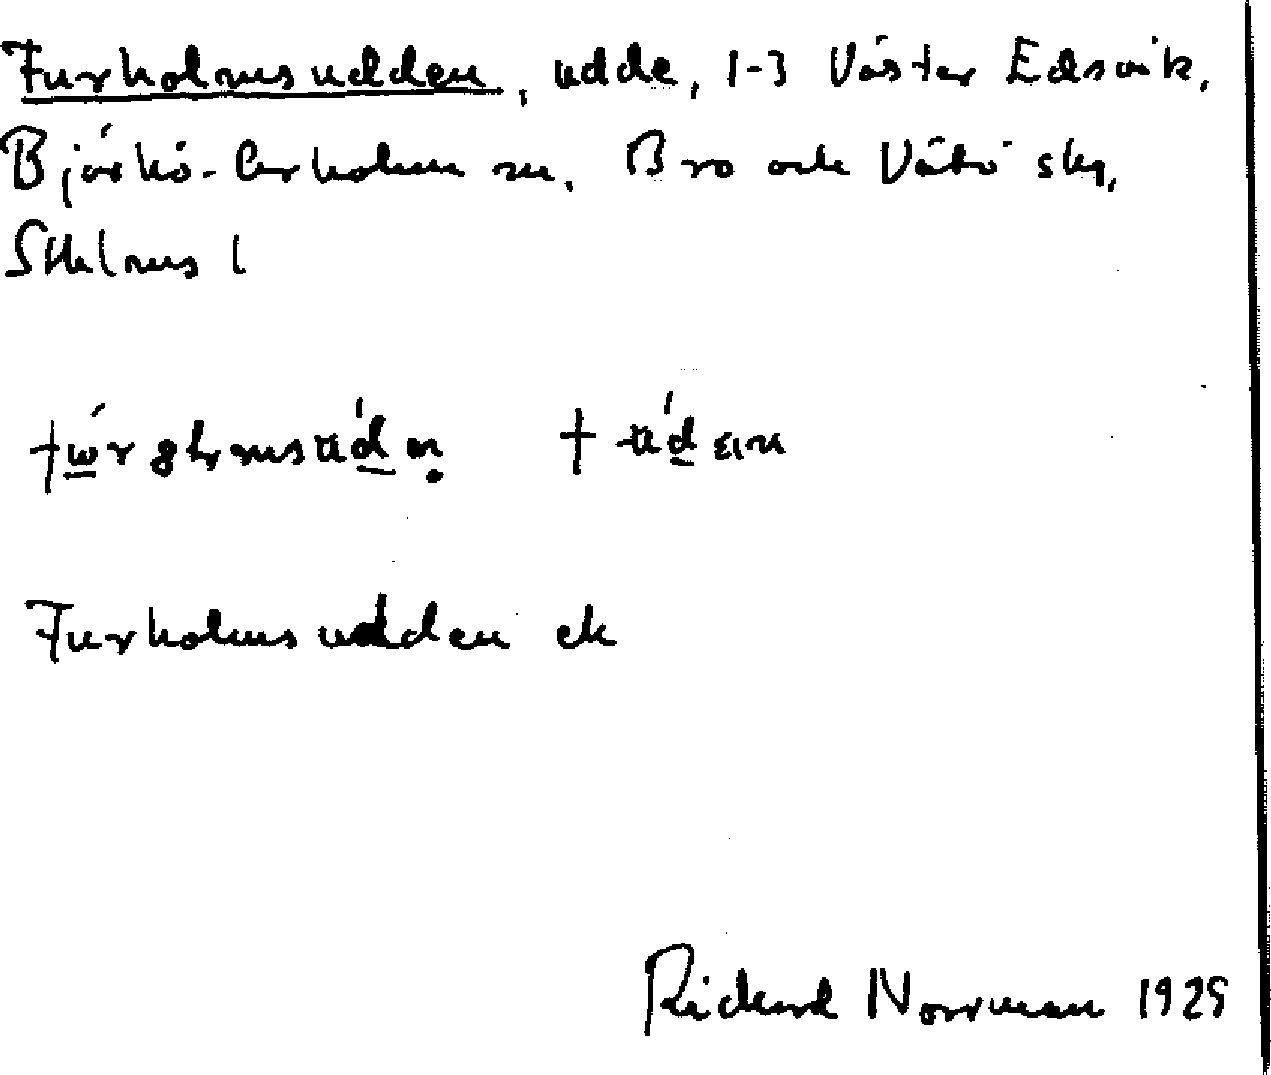 Furholmsudden, udde, 1-3 Väster Edsvik,
Björkö-Arholma sn. Bro och Vätö skg,
Sthlms l
Furholmsudden ek
Richard Norrman 1929